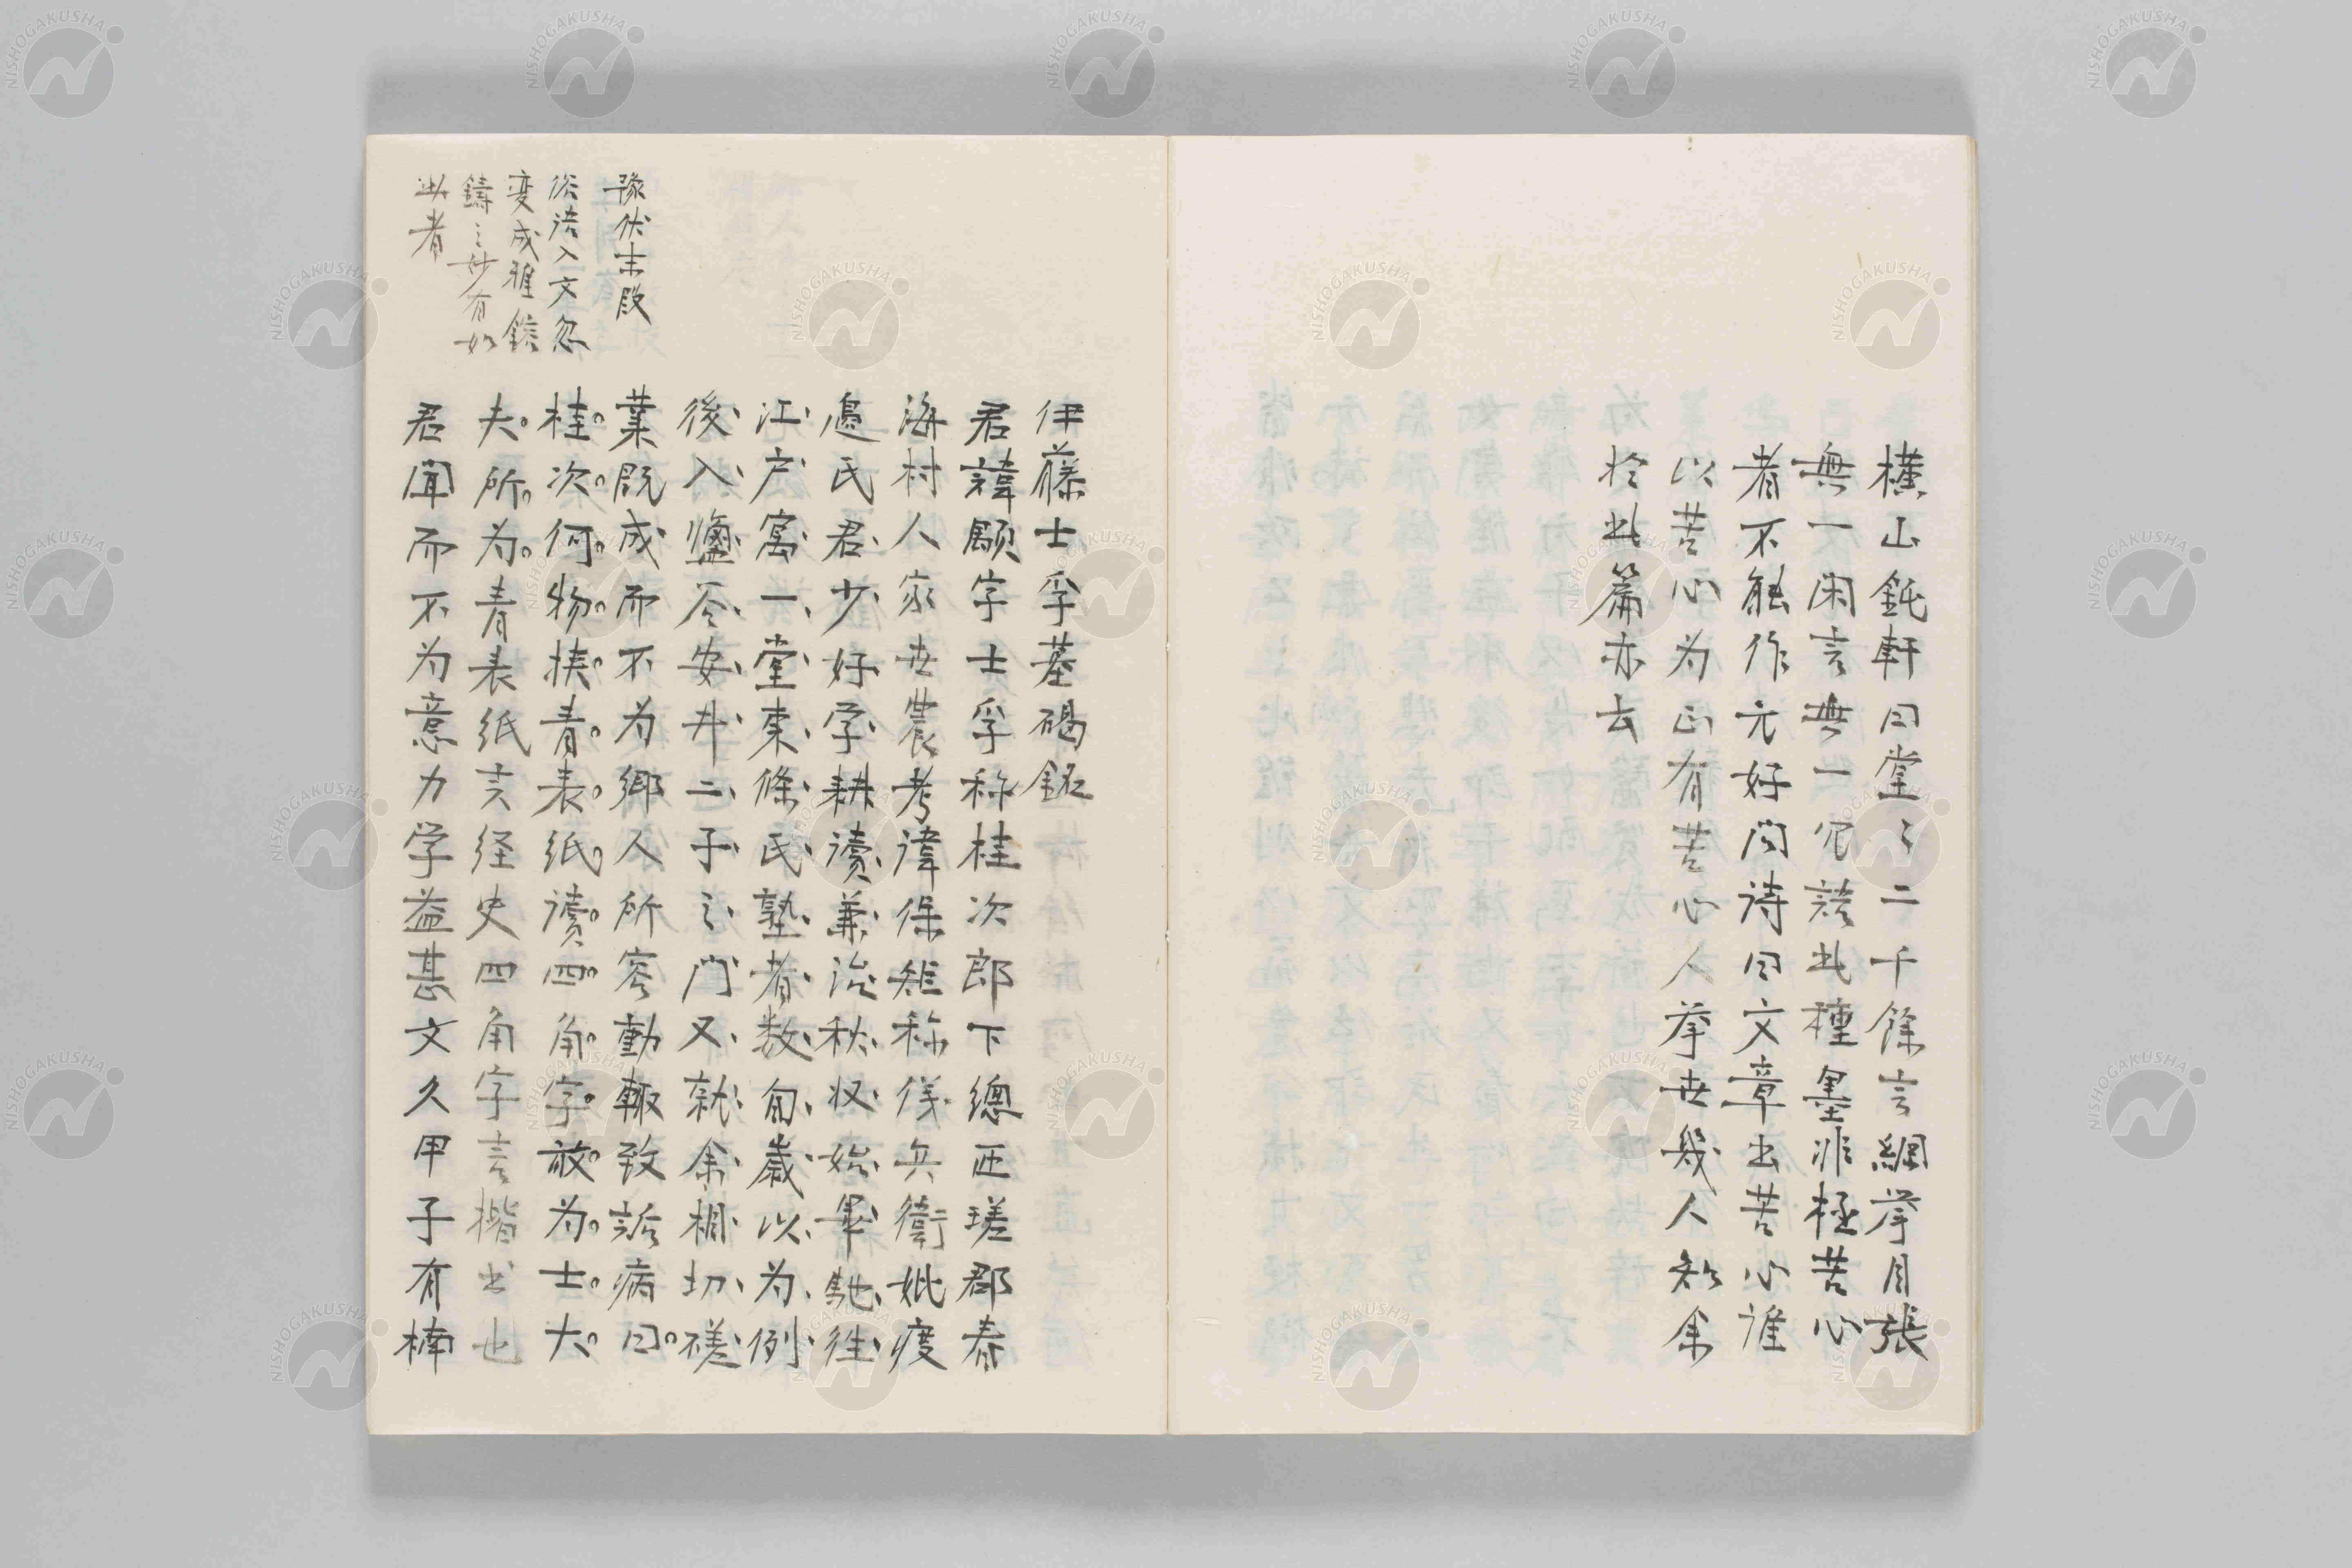 横山鈍軒曰堂々二千餘言綱挙目張
無一閑言無一冗語此種墨非極苦心
者不能作元好問詩曰文章出苦心誰
以苦心為正有苦心人挙世幾人知余
於此篇亦云
伊藤士孚墓碣銘
君諱顒字士孚称桂次郎下總匝瑳郡春
海村人家世農考諱保矩称伐兵衛妣度
邉氏君少好学耕讀兼治秋収始畢馳往
江戸寓一堂東條氏塾者数旬歳以為例
後入塩谷安井二子之門又就余相切磋
業既成而不為郷人所容動輙致訴病曰
桂次何物挟青表紙讀四角字放為士大
夫所為青表紙言経史四角字言楷書也
君聞而不為意力学益甚文久甲子有楠
豫伏末段
俗語入文忽
変成雅鎔
鑄之妙有如
此者